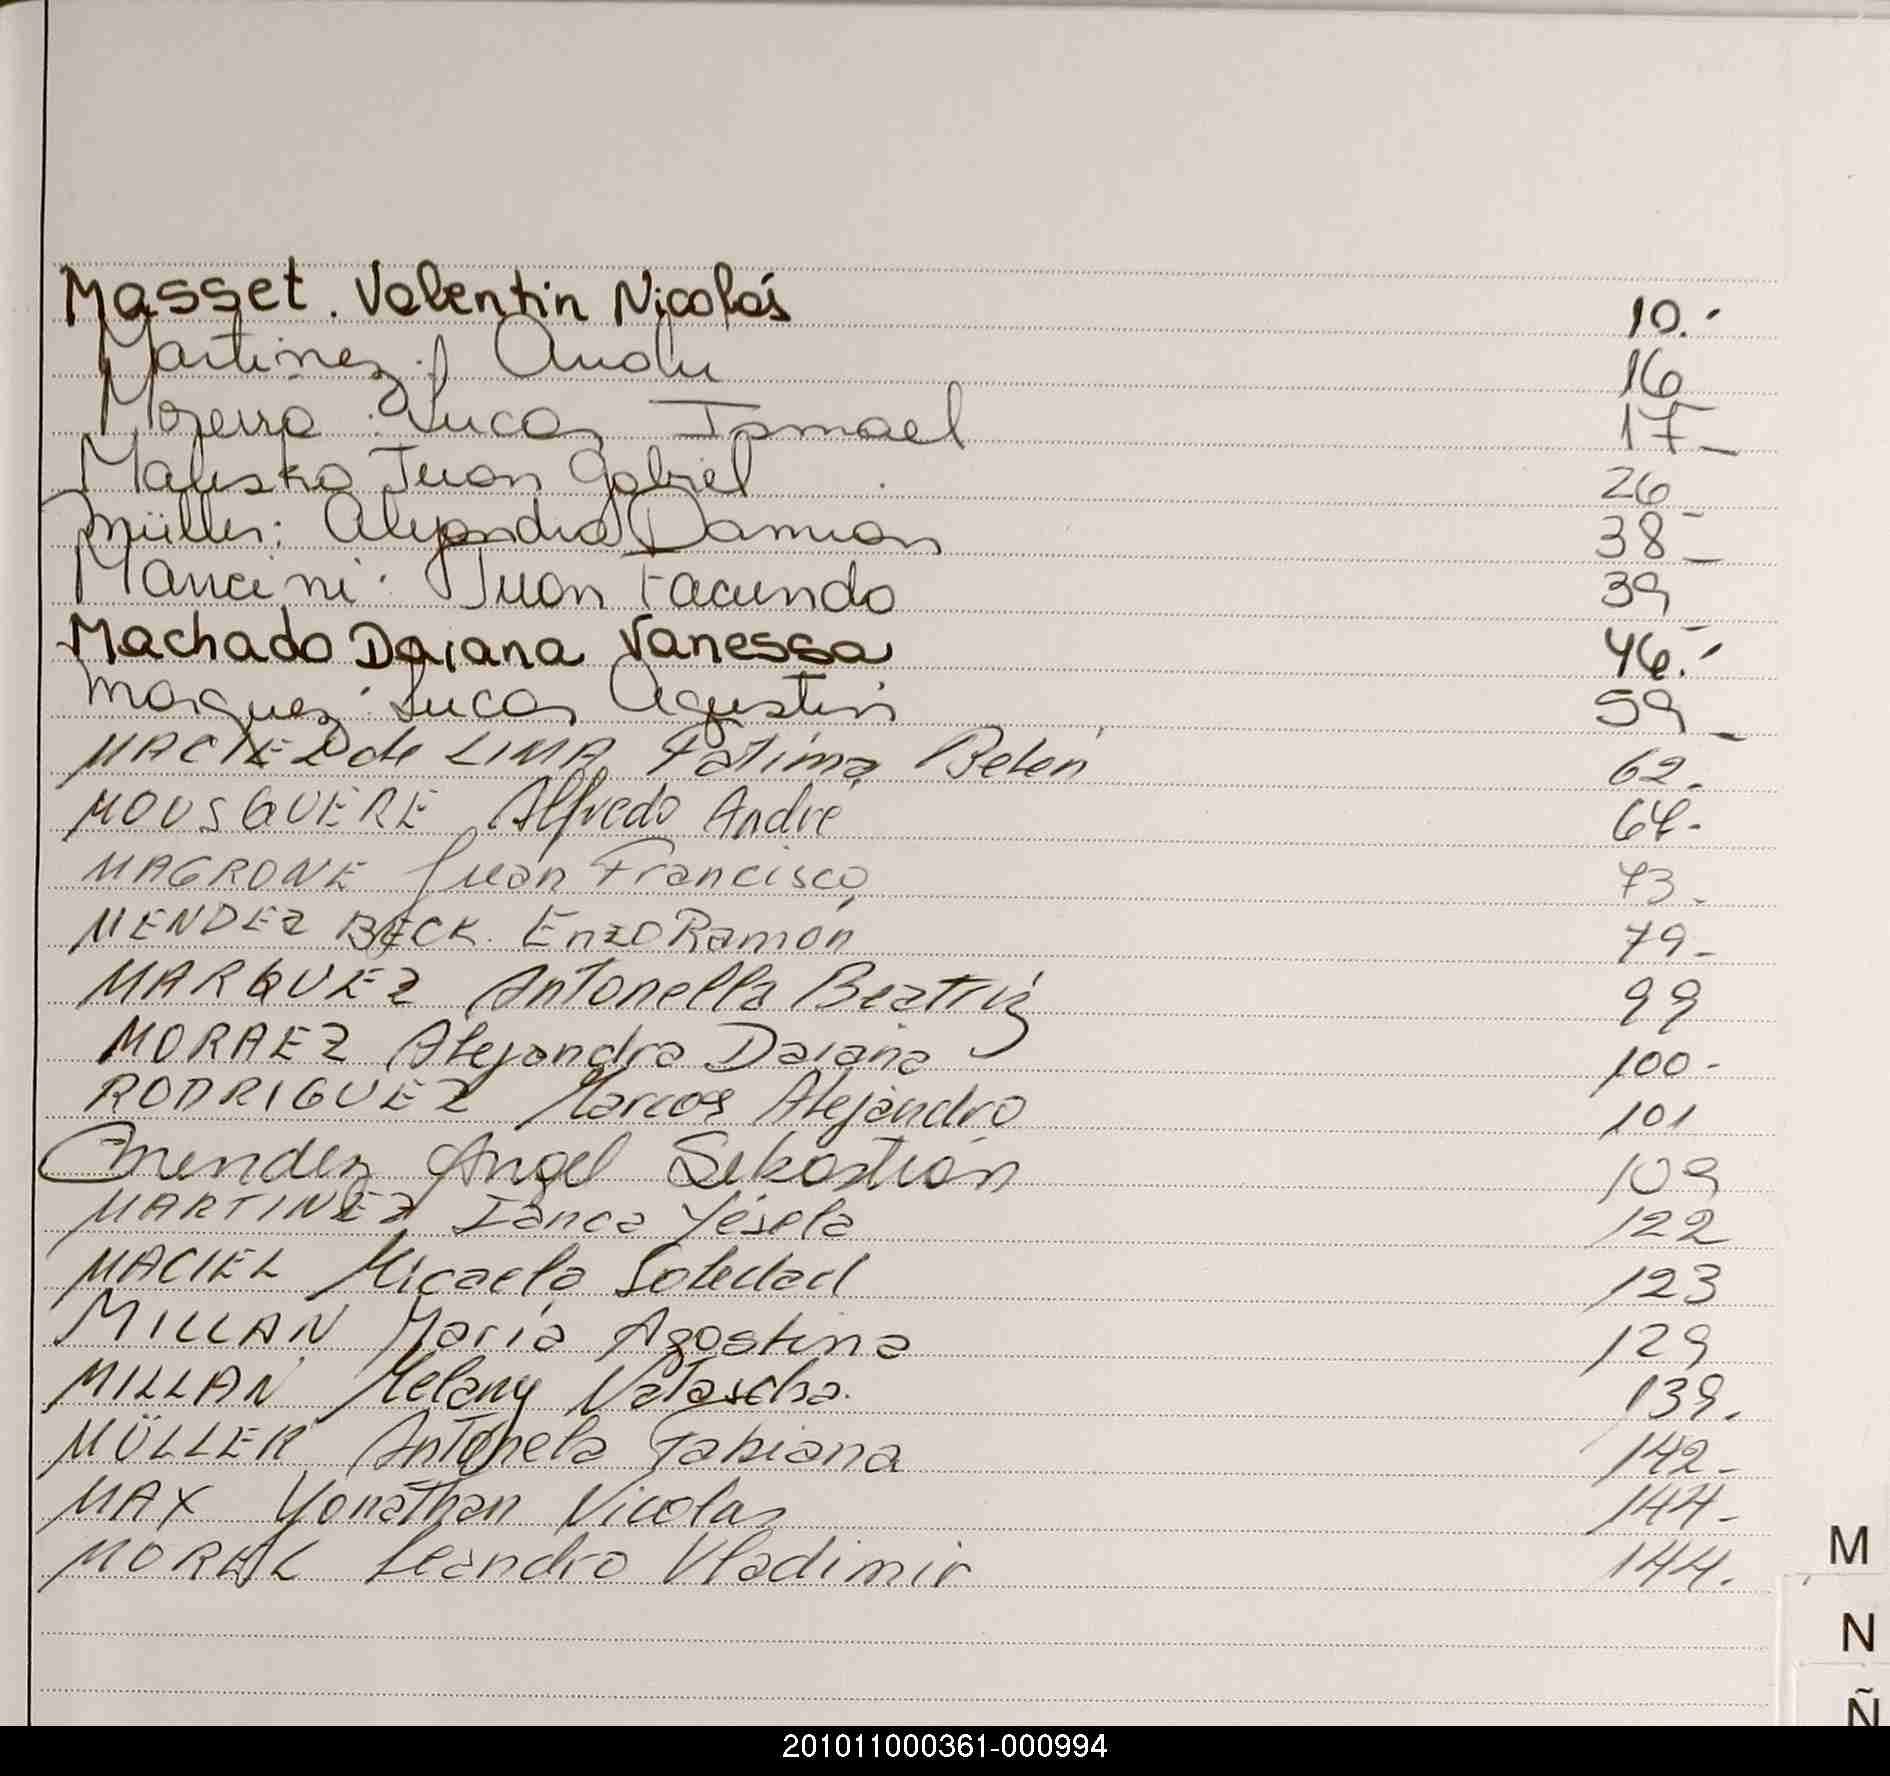 Masset. Valentin Nicolás 10.-
Martinez: 16
Lucas Ismael 17-
Juan Gabriel 26
Müller: Alejandro Damian 38-
Mancini: Juan Facundo 39
Machado Daiana Vanessa 46.-
Marquez: Lucas Agustin 59-
MACIEL de LIMA Fatima Belén 62.
MOUSQUERE Alfredo André 64-
MAGRONE Juan Francisco 73-
MENDEZ BECK. Enzo Ramón 79-
MARQUEZ Antonella Beatriz 99
MORAEZ Alejandra Daiana 100-
RODRIGUEZ Marcos Alejandro 101
Mendez Angel Sebastián 109
MARTINEZ Ianca Yésela 122
MACIEL Micaela Soledad 123
MILLAN María Agostina 129
MILLAN Melany Natascha. 139.
MÜLLER Antonela Fabiana 142-
MAX Yonathan Nicolas 144-
Leandro Vladimir 144.
M
N
Ñ
201011000361-000994